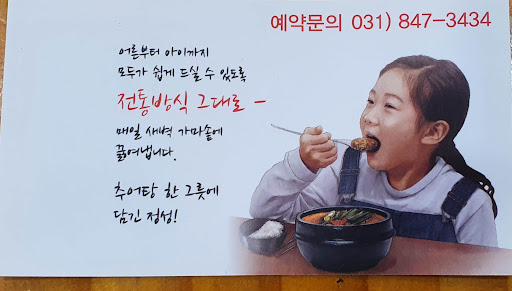 예약문의 031) 847-3434
어른부터 아이까지
모두가 쉽게 드실 수 있도록
전통방식 그대로 -
매일 새벽 가마솥에
끓여냅니다.
추어탕 한 그릇에
담긴 정성!